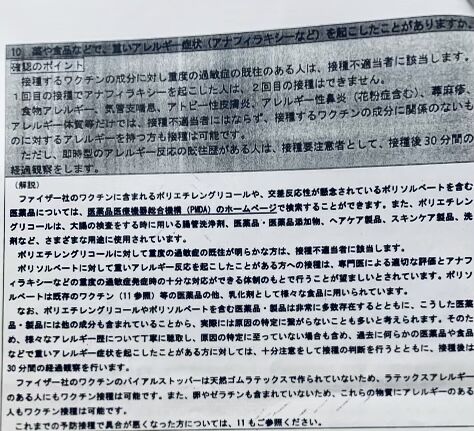 10 薬や食品などで、重いアレルギー症状（アナフィラキシーなど）を起こしたことがありますか。
確認のポイント
接種するワクチンの成分に対し重度の過敏症の既往のある人は、接種不適当者に該当します。
1回目の接種でアナフィラキシーを起こした人は、2回目の接種はできません。
食物アレルギー、気管支喘息、アトピー性皮膚炎、アレルギー性鼻炎（花粉症含む）、蕁麻疹、
アレルギー体質等だけでは、接種不適当者にはならず、接種するワクチンの成分に関係のないも
のに対するアレルギーを持つ方も接種は可能です。
ただし、即時型のアレルギー反応の既往歴がある人は、接種要注意者として、接種後30分間の
経過観察をします。
（解説）
ファイザー社のワクチンに含まれるポリエチレングリコールや、交差反応性が懸念されているポリソルベートを含む
医薬品については、医薬品医療機器総合機構（PMDA）のホームページで検索することができます。また、ポリエチレン
グリコールは、大腸の検査をする時に用いる腸管洗浄剤、医薬品・医薬品添加物、ヘアケア製品、スキンケア製品、洗
剤など、さまざまな用途に使用されています。
ポリエチレングリコールに対して重度の過敏症の既往が明らかな方は、接種不適当者に該当します。
ポリソルベートに対して重いアレルギー反応を起こしたことがある方への接種は、専門医による適切な評価とアナフ
ィラキシーなどの重度の過敏症発症時の十分な対応ができる体制のもとで行うことが望ましいとされています。ポリソ
ルベートは既存のワクチン（11参照）等の医薬品の他、乳化剤として様々な食品に用いられています。
なお、ポリエチレングリコールやポリソルベートを含む医薬品・製品は非常に多数存在するとともに、こうした医薬
品・製品には他の成分も含まれていることから、実際には原因の特定に繋がらないことも多いと考えられます。そのた
め、様々なアレルギー歴について丁寧に聴取し、原因の特定に至っていない場合も含め、過去に何らかの医薬品や食品
などで重いアレルギー症状を起こしたことがある方に対しては、十分注意をして接種の判断を行うとともに、接種後は
30分間の経過観察を行います。
ファイザー社のワクチンのバイアルストッパーは天然ゴムラテックスで作られていないため、ラテックスアレルギー
のある人にもワクチン接種は可能です。また、卵やゼラチンも含まれていないため、これらの物質にアレルギーのある
人もワクチン接種は可能です。
これまでの予防接種で具合が悪くなった方については、11もご参照ください。